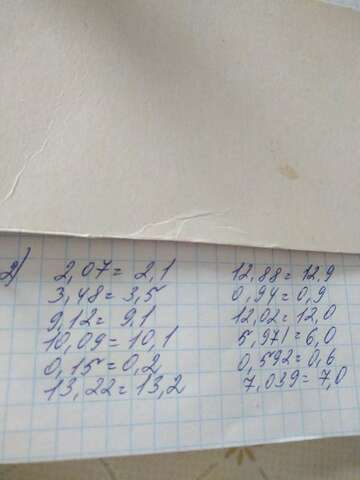 2) 2,07 = 2,1 12,88 = 12,9
3,48 = 3,5 0,94 = 0,9
9,12 = 9,1 12,02 = 12,0
10,09 = 10,1 5,971 = 6,0
0,15 = 0,2 0,592 = 0,6
13,22 = 13,2 7,039 = 7,0